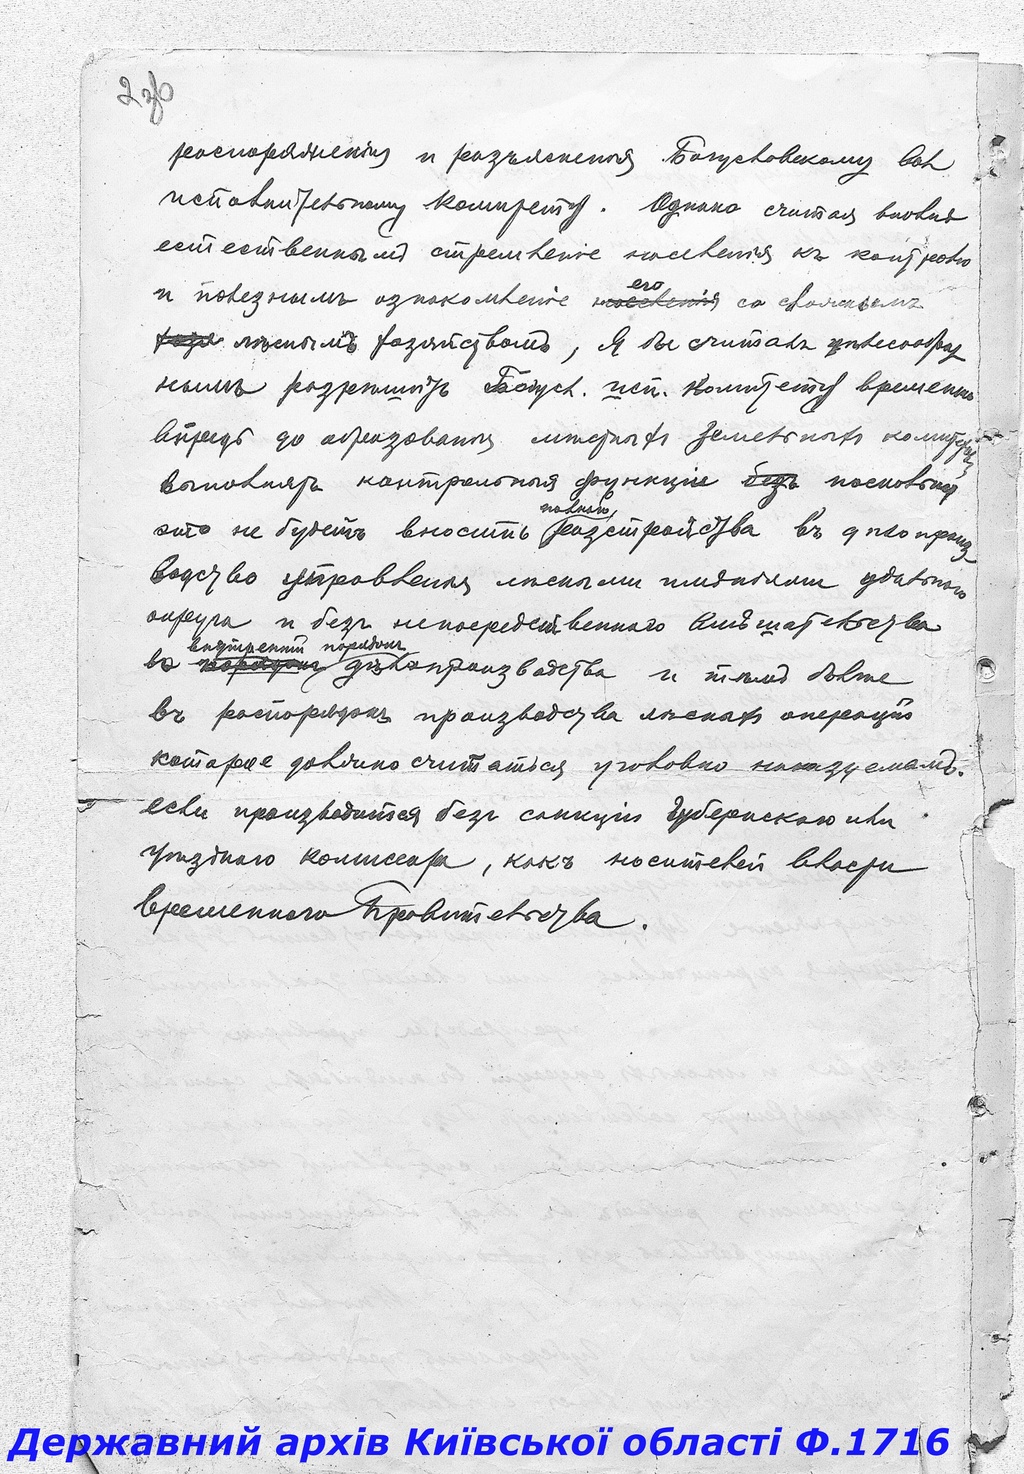 2 зв
распоряженія и разъясненія Богуславскому вол
исполнительному комитету. Однако считая вполнѣ
естественнымъ стремленіе населенія къ контролю
и полезнымъ ознакомленіе населенія его со своимъ
лѣснымъ хозяйствомъ, я бы считалъ цѣлесообраз
нымъ разрѣшить Богусл. исп. Комитету временно
впредь до образованія мѣстныхъ земельныхъ комитетовъ
выполнять контрольныя функціи безъ поскольку
это не будетъ вносить полнаго разстройства въ дѣлопроиз
водство управленія лѣсными имѣніями удѣльнаго
округа и безъ непосредственнаго вмѣшательства
въ порядокъ внутренній порядокъ дѣлопроизводства и тѣмъ болѣе
въ распорядокъ производства лѣсныхъ операцій
которое должно считаться уголовно наказуемымъ.
если производится безъ санкціи Губернскаго или
Уѣзднаго комиссара, какъ носителей власти
временнаго Правительства.
Державний архів Київської області Ф.1716